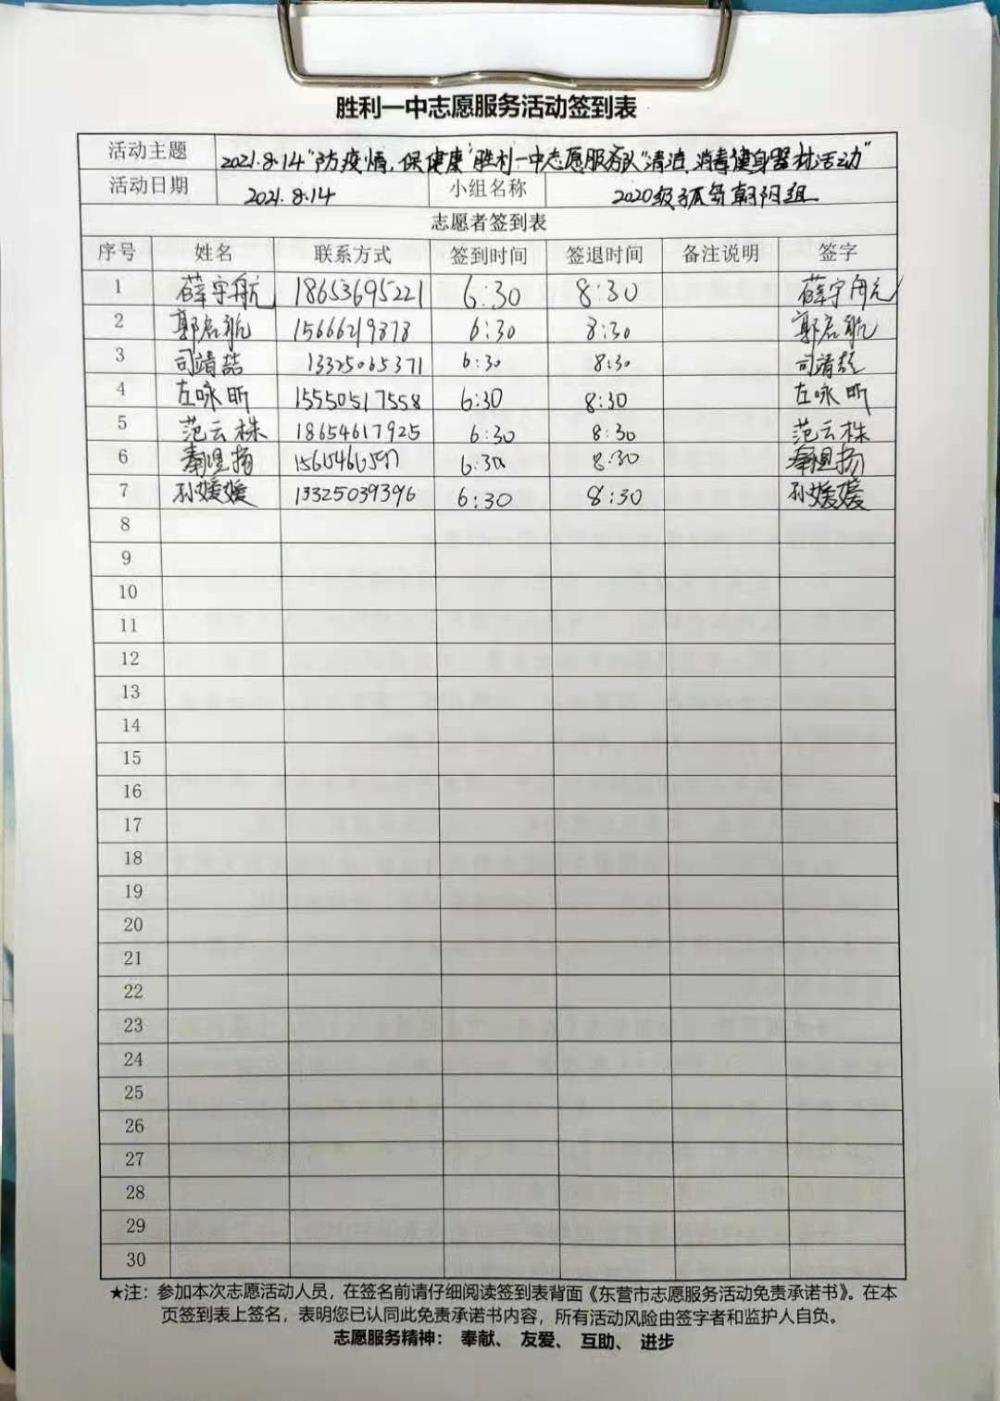 胜利一中志愿服务活动签到表
活动主题 2021.8.14"防疫情,保健康"胜利一中志愿服务队"清洁,消毒健身器材活动"
活动日期 2021.8.14 小组名称 2020级 朝阳组
志愿者签到表
序号 姓名 联系方式 签到时间 签退时间 备注说明 签字
1 薛宇航 18653695221 6:30 8:30 薛宇航
2 郭启航 15666219378 6:30 8:30 郭启航
3 司靖喆 13325065371 6:30 8:30 司靖喆
4 左咏昕 15550517558 6:30 8:30 左咏昕
5 范云株 18654617925 6:30 8:30 范云株
6 6:30 8:30
7 孙媛媛 13325039396 6:30 8:30 孙媛媛
8
9
10
11
12
13
14
15
16
17
18
19
20
21
22
23
24
25
26
27
28
29
30
★注：参加本次志愿活动人员，在签名前请仔细阅读签到表背面《东营市志愿服务活动免责承诺书》。在本
页签到表上签名，表明您已认同此免责承诺书内容，所有活动风险由签字者和监护人自负。
志愿服务精神： 奉献、 友爱、 互助、 进步